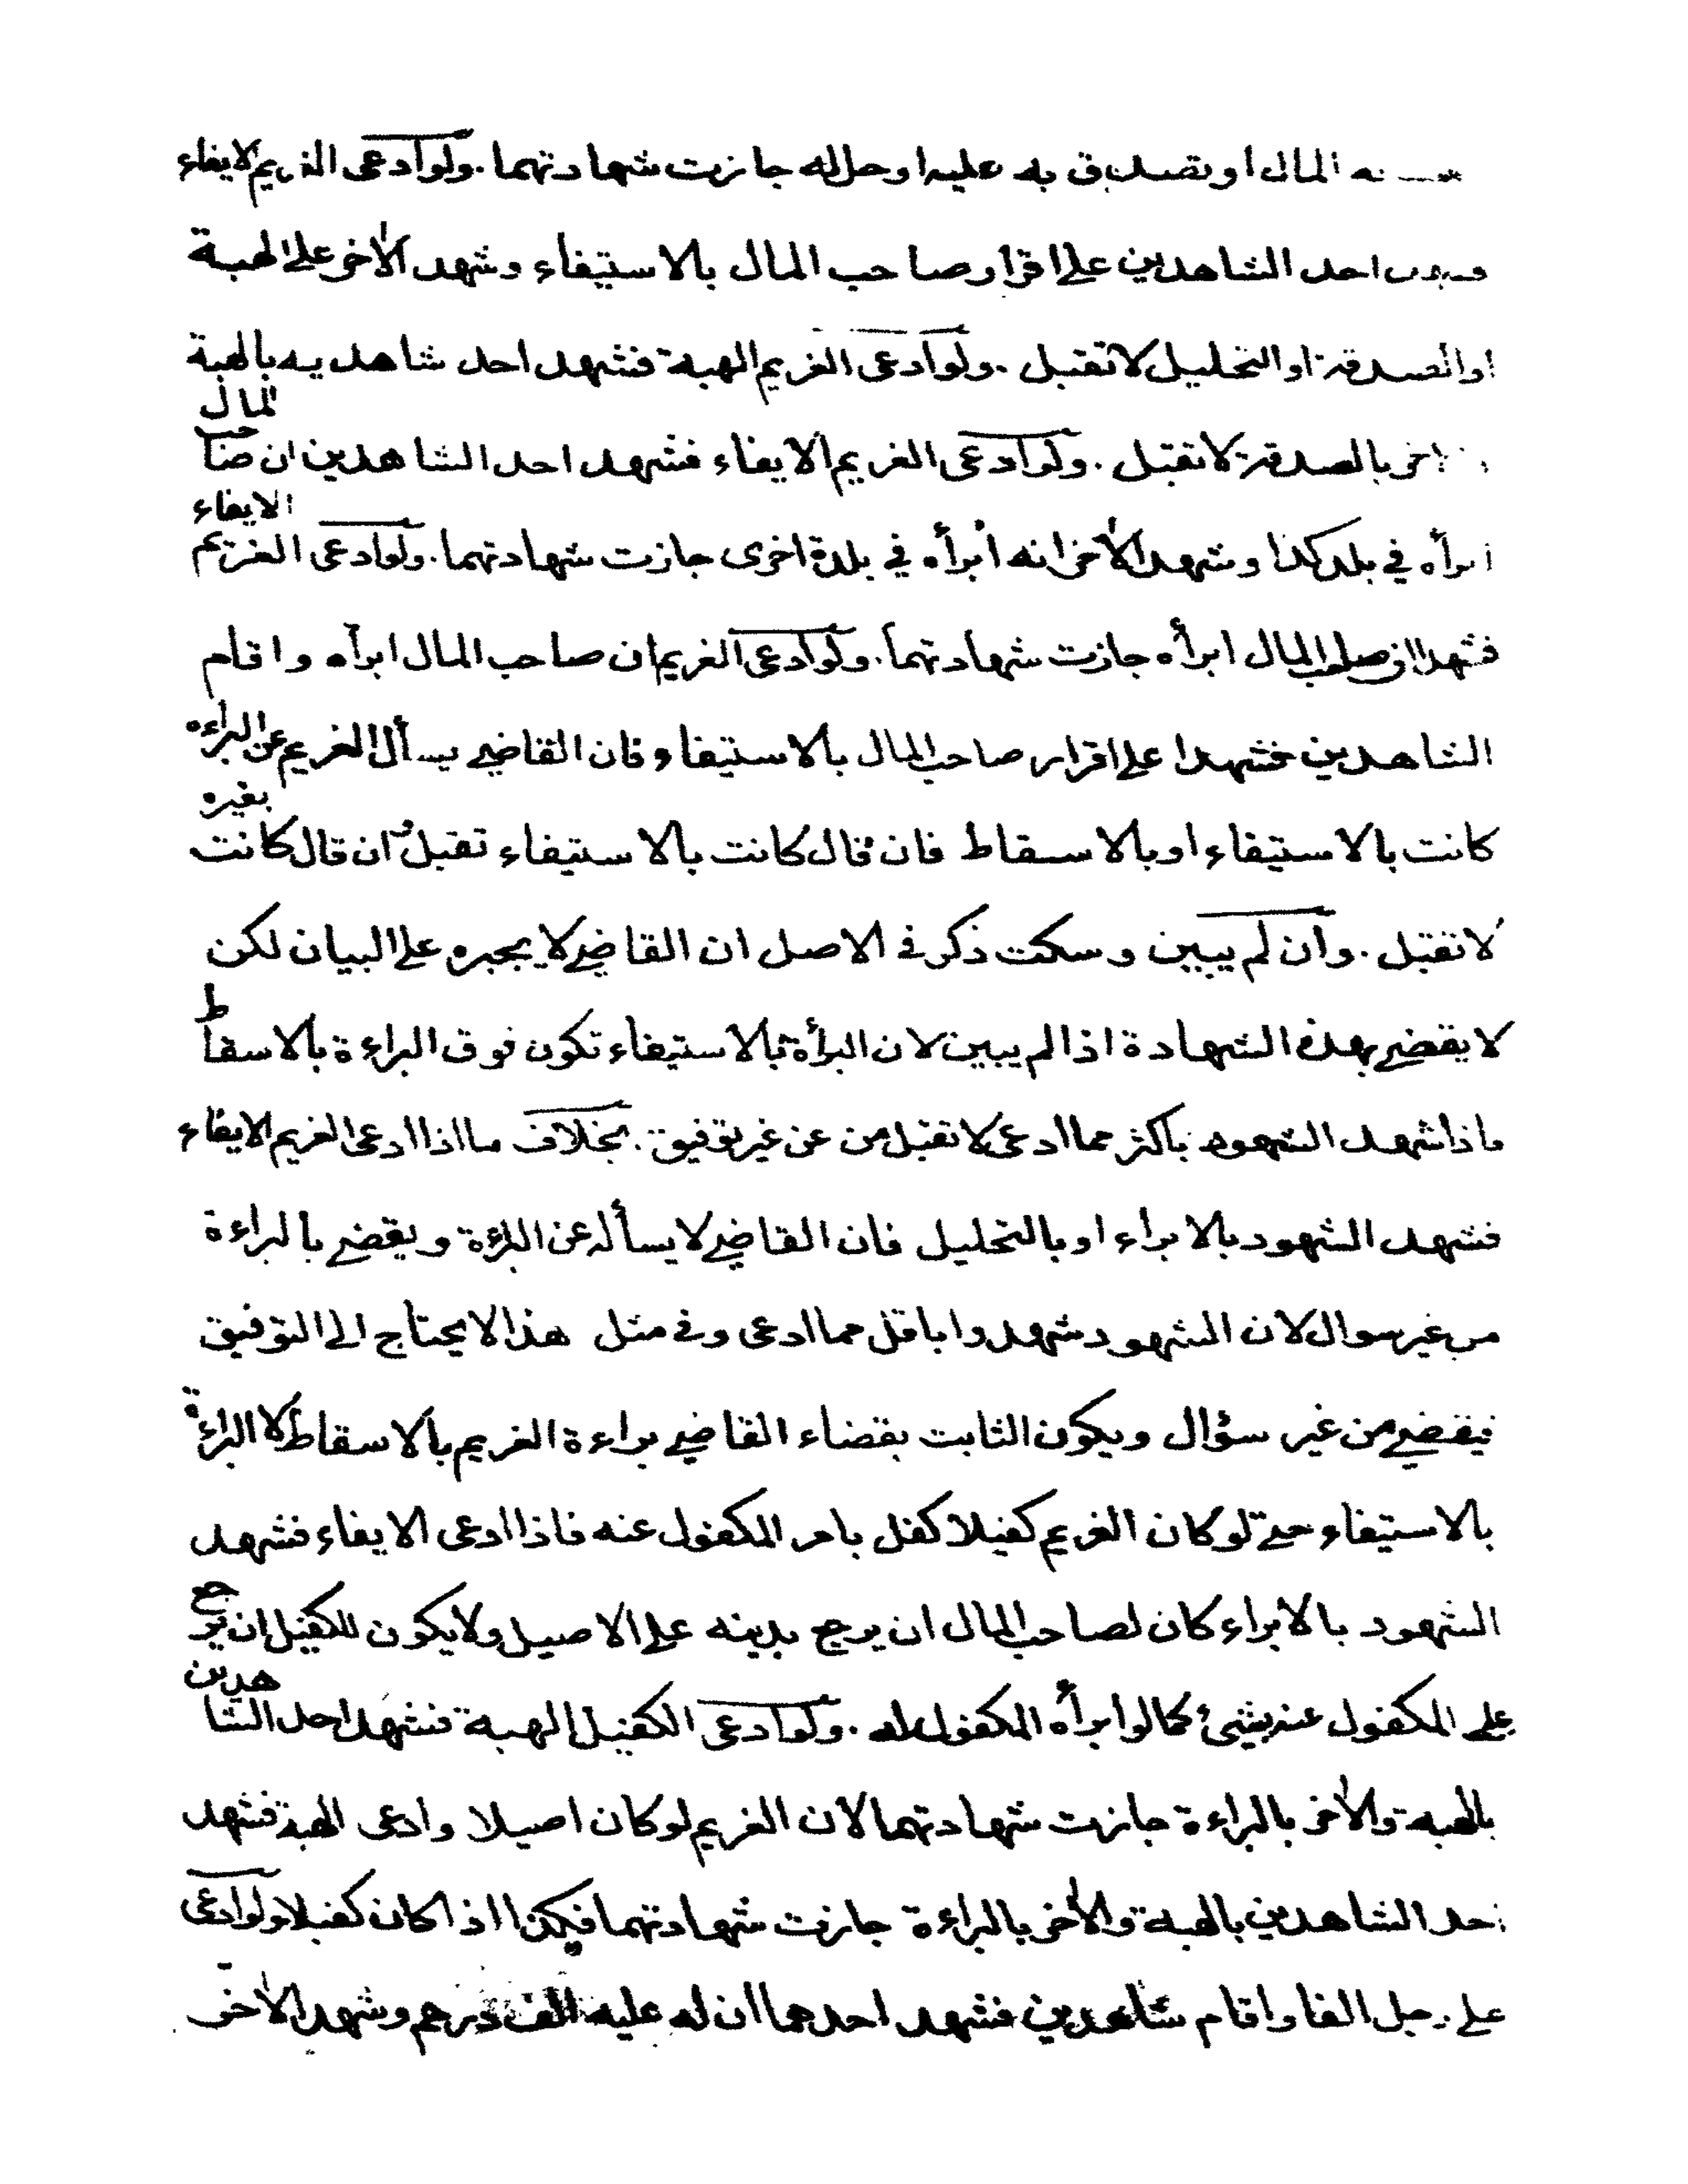 المال او تصدق به عليه او حلله جازت شهادتهما . ولو ادعى الغريم الايفاء
احد الشاهدين على اقرار صاحب المال بالاستيفاء وشهد الأخر على الهبة
او الصدقة او التحليل لا تقبل . ولو ادعى الغريم الهبة فشهد احد شاهديه بالهبة
بالصدقة لا تقبل . ولو ادعى الغريم الايفاء فشهد احد الشاهدين ان صاحب المال
ابرأه في بلد كذا وشهد الأخر انه ابرأه في بلدة اخرى جازت شهادتهما . ولو ادعى الغريم الايفاء
فشهدا ان صاحب المال ابرأه جازت شهادتهما . ولو ادعى الغريم ان صاحب المال ابرأه واقام
الشاهدين فشهدا على اقرار صاحب المال بالاستيفاء فان القاضي يسأل الغريم عن البراءه
كانت بالاستيفاء او بالاسقاط فان قال كانت بالاستيفاء تقبل ان قال كانت بغيره
لا تقبل . وان لم يبين وسكت ذكر في الاصل ان القاضي لا يجبره على البيان لكن
لا يقضي بهذه الشهادة اذا لم يبين لان البرأة بالاستيفاء تكون فوق البراءة بالاسقاط
فاذا شهد الشهود باكثر مما ادعى لا تقبل من عن غير توفيق . بخلاف ما اذا ادعى الغريم الايفاء
فشهد الشهود بالابراء او بالتحليل فان القاضي لا يسأله عن البراءة ويقضي بالبراءة
من غير سوال لان الشهود شهدوا باقل مما ادعى وفي مثل هذا لا يحتاج الى التوفيق
فيقضي من غير سؤال ويكون الثابت بقضاء القاضي براءة الغريم بالاسقاط لا البراءة
بالاستيفاء حتى لو كان الغريم كفيلا كفل بامر المكفول عنه فاذا ادعى الايفاء فشهد
الشهود بالابراء كان لصاحب المال ان يرجع بدينه على الاصيل ولا يكون للكفيل ان يرجع
على المكفول عنه بشئ كما لو ابرأه المكفول له . ولو ادعى الكفيل الهبة فشهد احد الشاهدين
بالهبة والأخر بالبراءة جازت شهادتهما لان الغريم لو كان اصيلا وادعى الهبة فشهد
احد الشاهدين بالهبة والأخر بالبراءة جازت شهادتهما فكذا اذا كان كفيلا ولو ادعى
على رجل الفا واقام شاهدين فشهد احدهما ان له عليه الف درهم وشهد الأخر